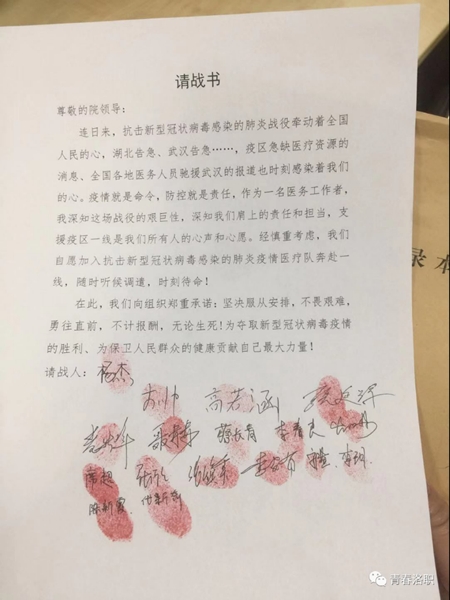 请战书
尊敬的院领导：
连日来，抗击新型冠状病毒感染的肺炎战役牵动着全国
人民的心，湖北告急、武汉告急……，疫区急缺医疗资源的
消息、全国各地医务人员驰援武汉的报道也时刻感染着我们
的心。疫情就是命令，防控就是责任，作为一名医务工作者，
我深知这场战役的艰巨性，深知我们肩上的责任和担当，支
援疫区一线是我们所有人的心声和心愿。经慎重考虑，我们
自愿加入抗击新型冠状病毒感染的肺炎疫情医疗队奔赴一
线，随时听候调遣，时刻待命！
在此，我们向组织郑重承诺：坚决服从安排，不畏艰难，
勇往直前，不计报酬，无论生死！为夺取新型冠状病毒疫情
的胜利、为保卫人民群众的健康贡献自己最大力量！
请战人：杨杰
高若涵
席超
录本
青春洛职